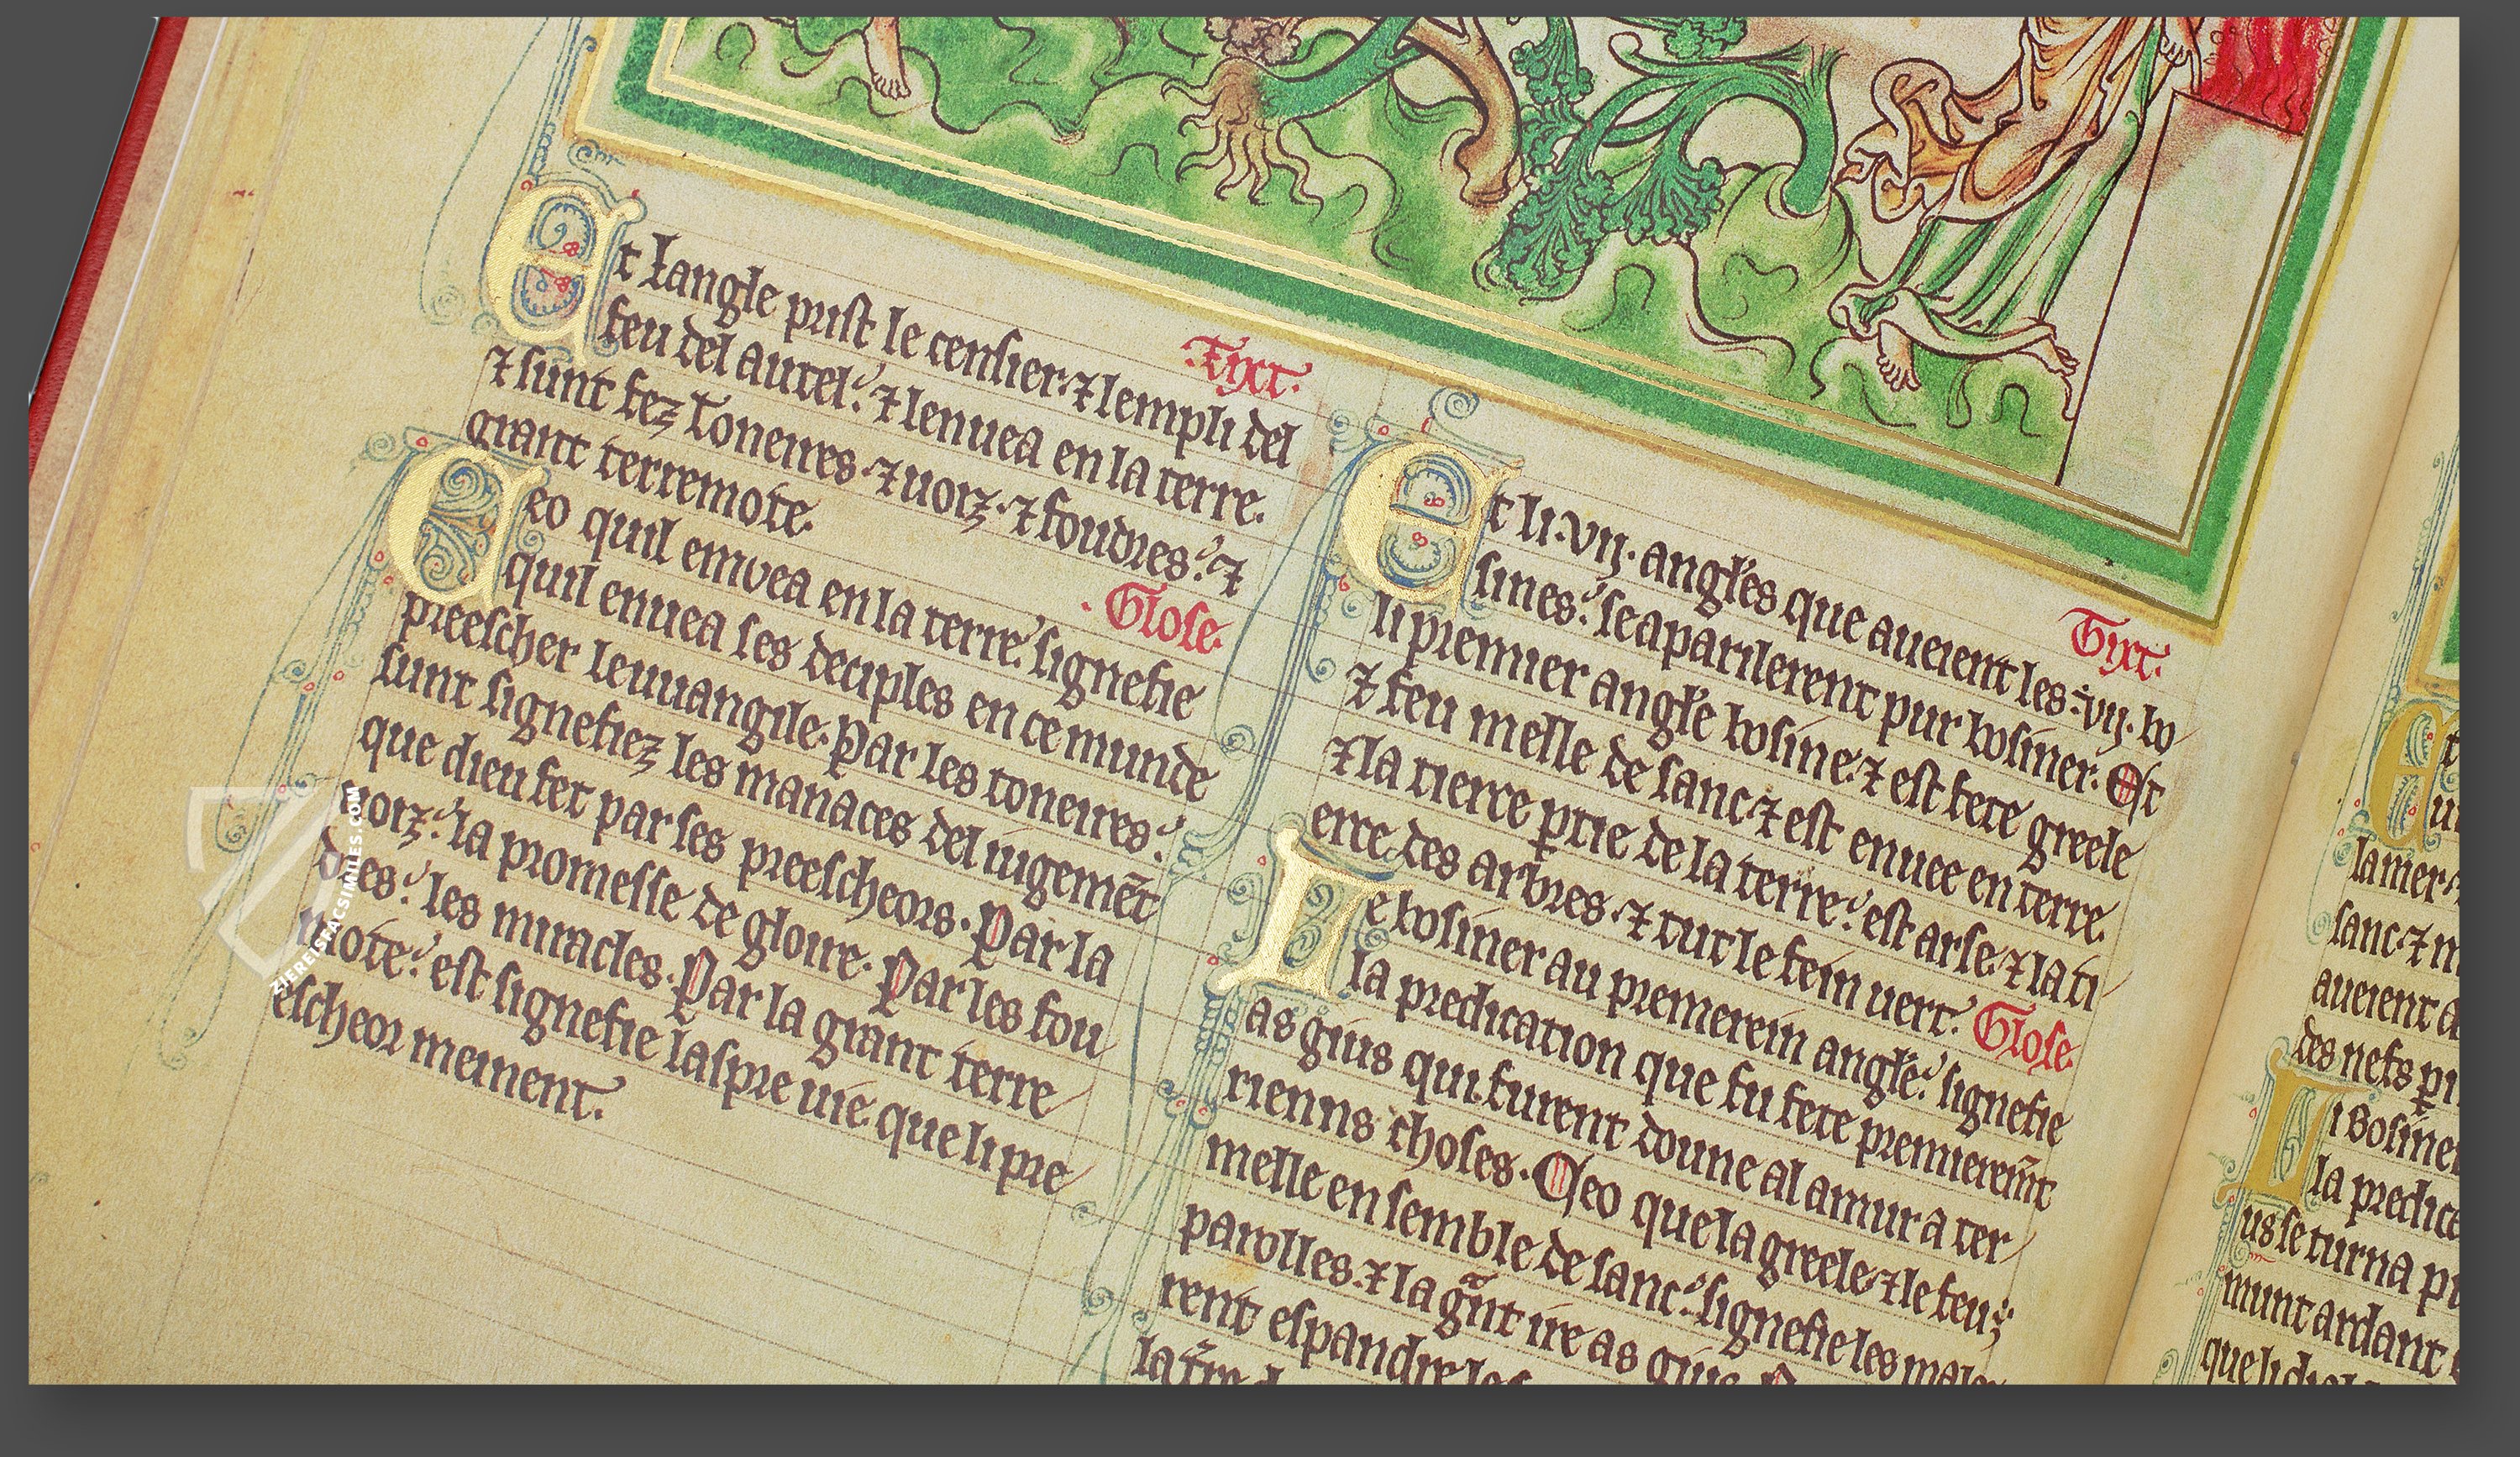 Tyxt.
Et langle prist le censier. ⁊ lempli del
feu del autel. ⁊ lenuea en la terre.
⁊ sunt fez toneires. ⁊ uoiz. ⁊ foudres. ⁊
grant terremote.
Glose.
Ceo quil enuoea en la terre signefie
quil enuea ses deciples en ce munde
preescher leuuangile. Par les toneires.
sunt signefiez les manaces del iugemēt
que dieu fet par ses preescheors. Par la
uoiz. la promesse de gloire. Par les fou
dres. les miracles. Par la grant terre
mote. est signefie laspre uie que li pre
escheor meinent.
Tyxt.
Et li .vij. angles que aueient les .vij. bo
sines. se aparilerent pur bosiner. Et
li premier angle bosine. ⁊ est fete greele
⁊ feu melle de sanc. ⁊ est enuee en terre.
⁊ la tierce ptie de la terre. est arse. ⁊ la ti
erce des arbres. ⁊ tut le fein uert. Glose.
Le bosiner au premerein angle. signefie
la predication que fu fete premieremt
as gius qui furent doune al amur a ter
rienns choses. Ceo que la greele. ⁊ le feu;
melle ensemble de sanc. signefie les males
parolles. ⁊ la gnt ire as gius.
rent espandre les
ZIEREISFACSIMILES.COM
la mer.
sanc. ⁊ m
aueient a
des nefs pi
Li Bosine
la predica
us se turna p
munt ardant
que li dia